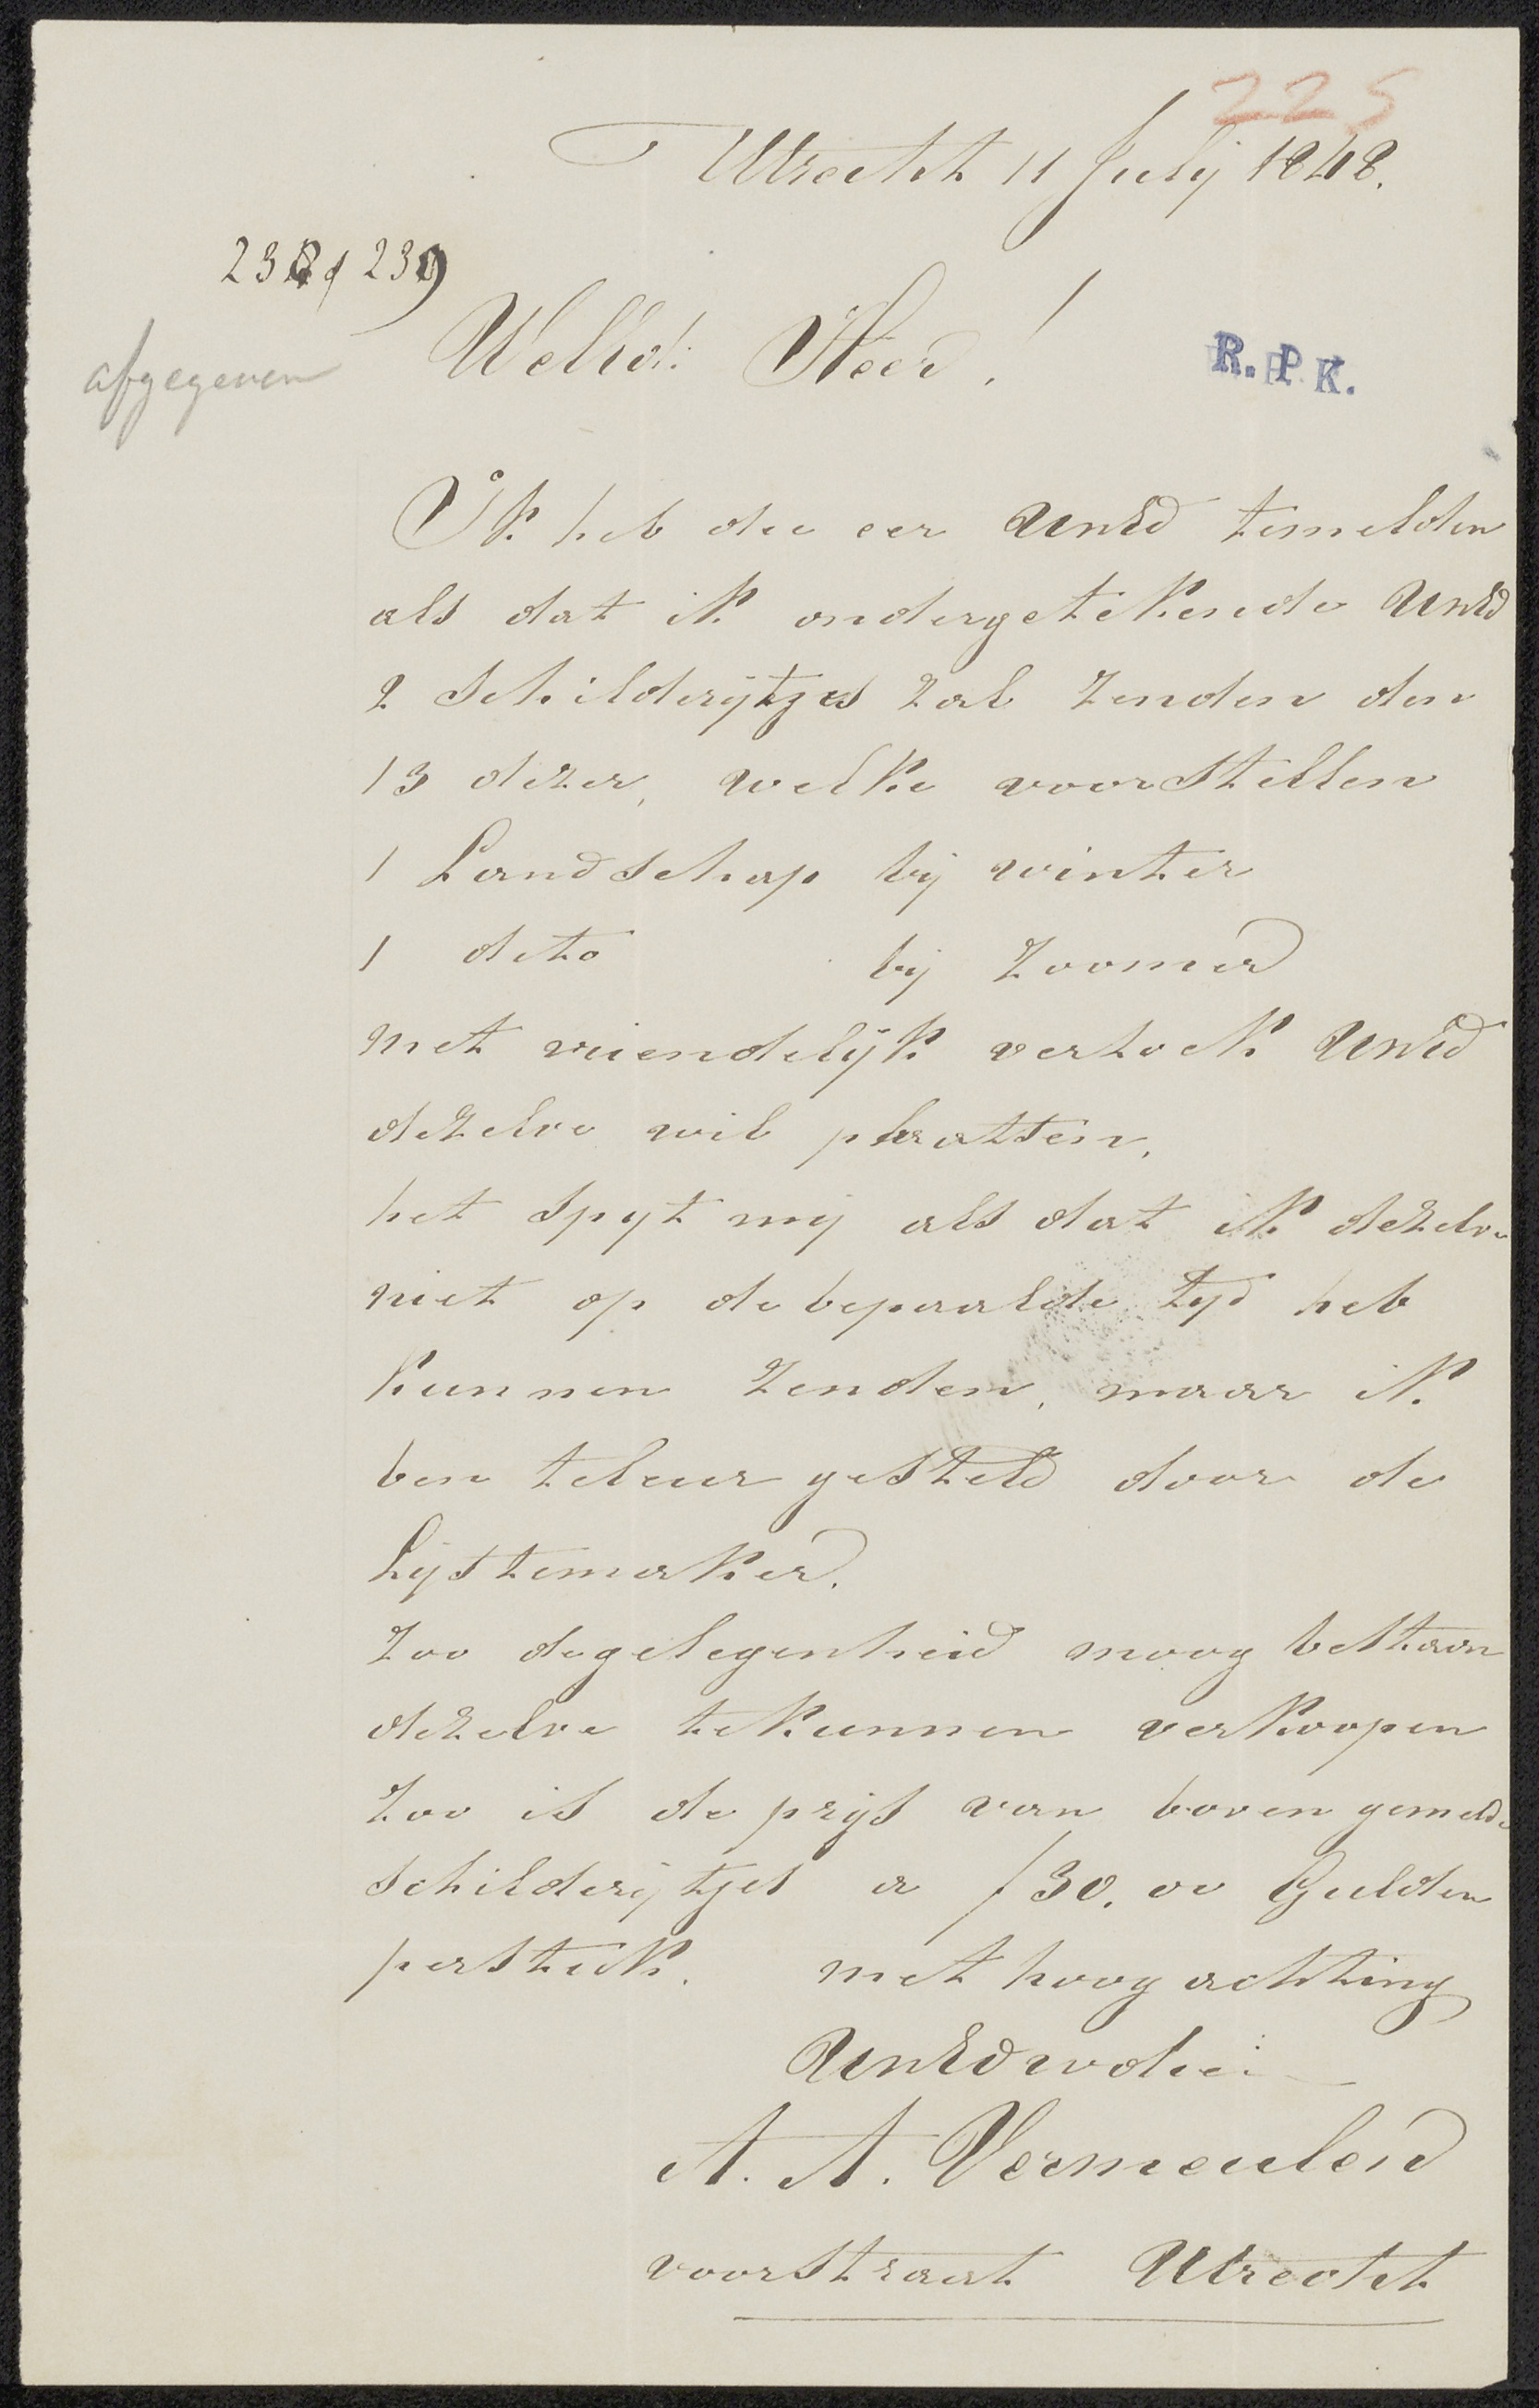 225
Utrecht 11 Julij 1848.
238/239
afgegeven
WelEd: Heer!
R.P.K.
Ik heb die eer UwEd temelden
als dat ik ondergetekende UwEd
2 schilderijtjes zal zenden den
13 dezer, welke voorstellen
1 Landschap bij winter
1 dito bij zoomer
met vriendelijk verzoek UwEd
dezelve wil plaatsen,
het spyt mij als dat ik dezelve
niet op de bepaalde tyd heb
kunnen zenden, maar ik
ben teleur gesteld door de
Lijstemaker.
zoo de gelegenheid moog bestaan
dezelve te kunnen verkoopen
zoo is de prijs van boven gemelde
schilderijtjes a ƒ30.00 Gulden
perstuk. met hoog achting
UwEdwdie:
A. A. Vermeulen
voorstraat Utrecht